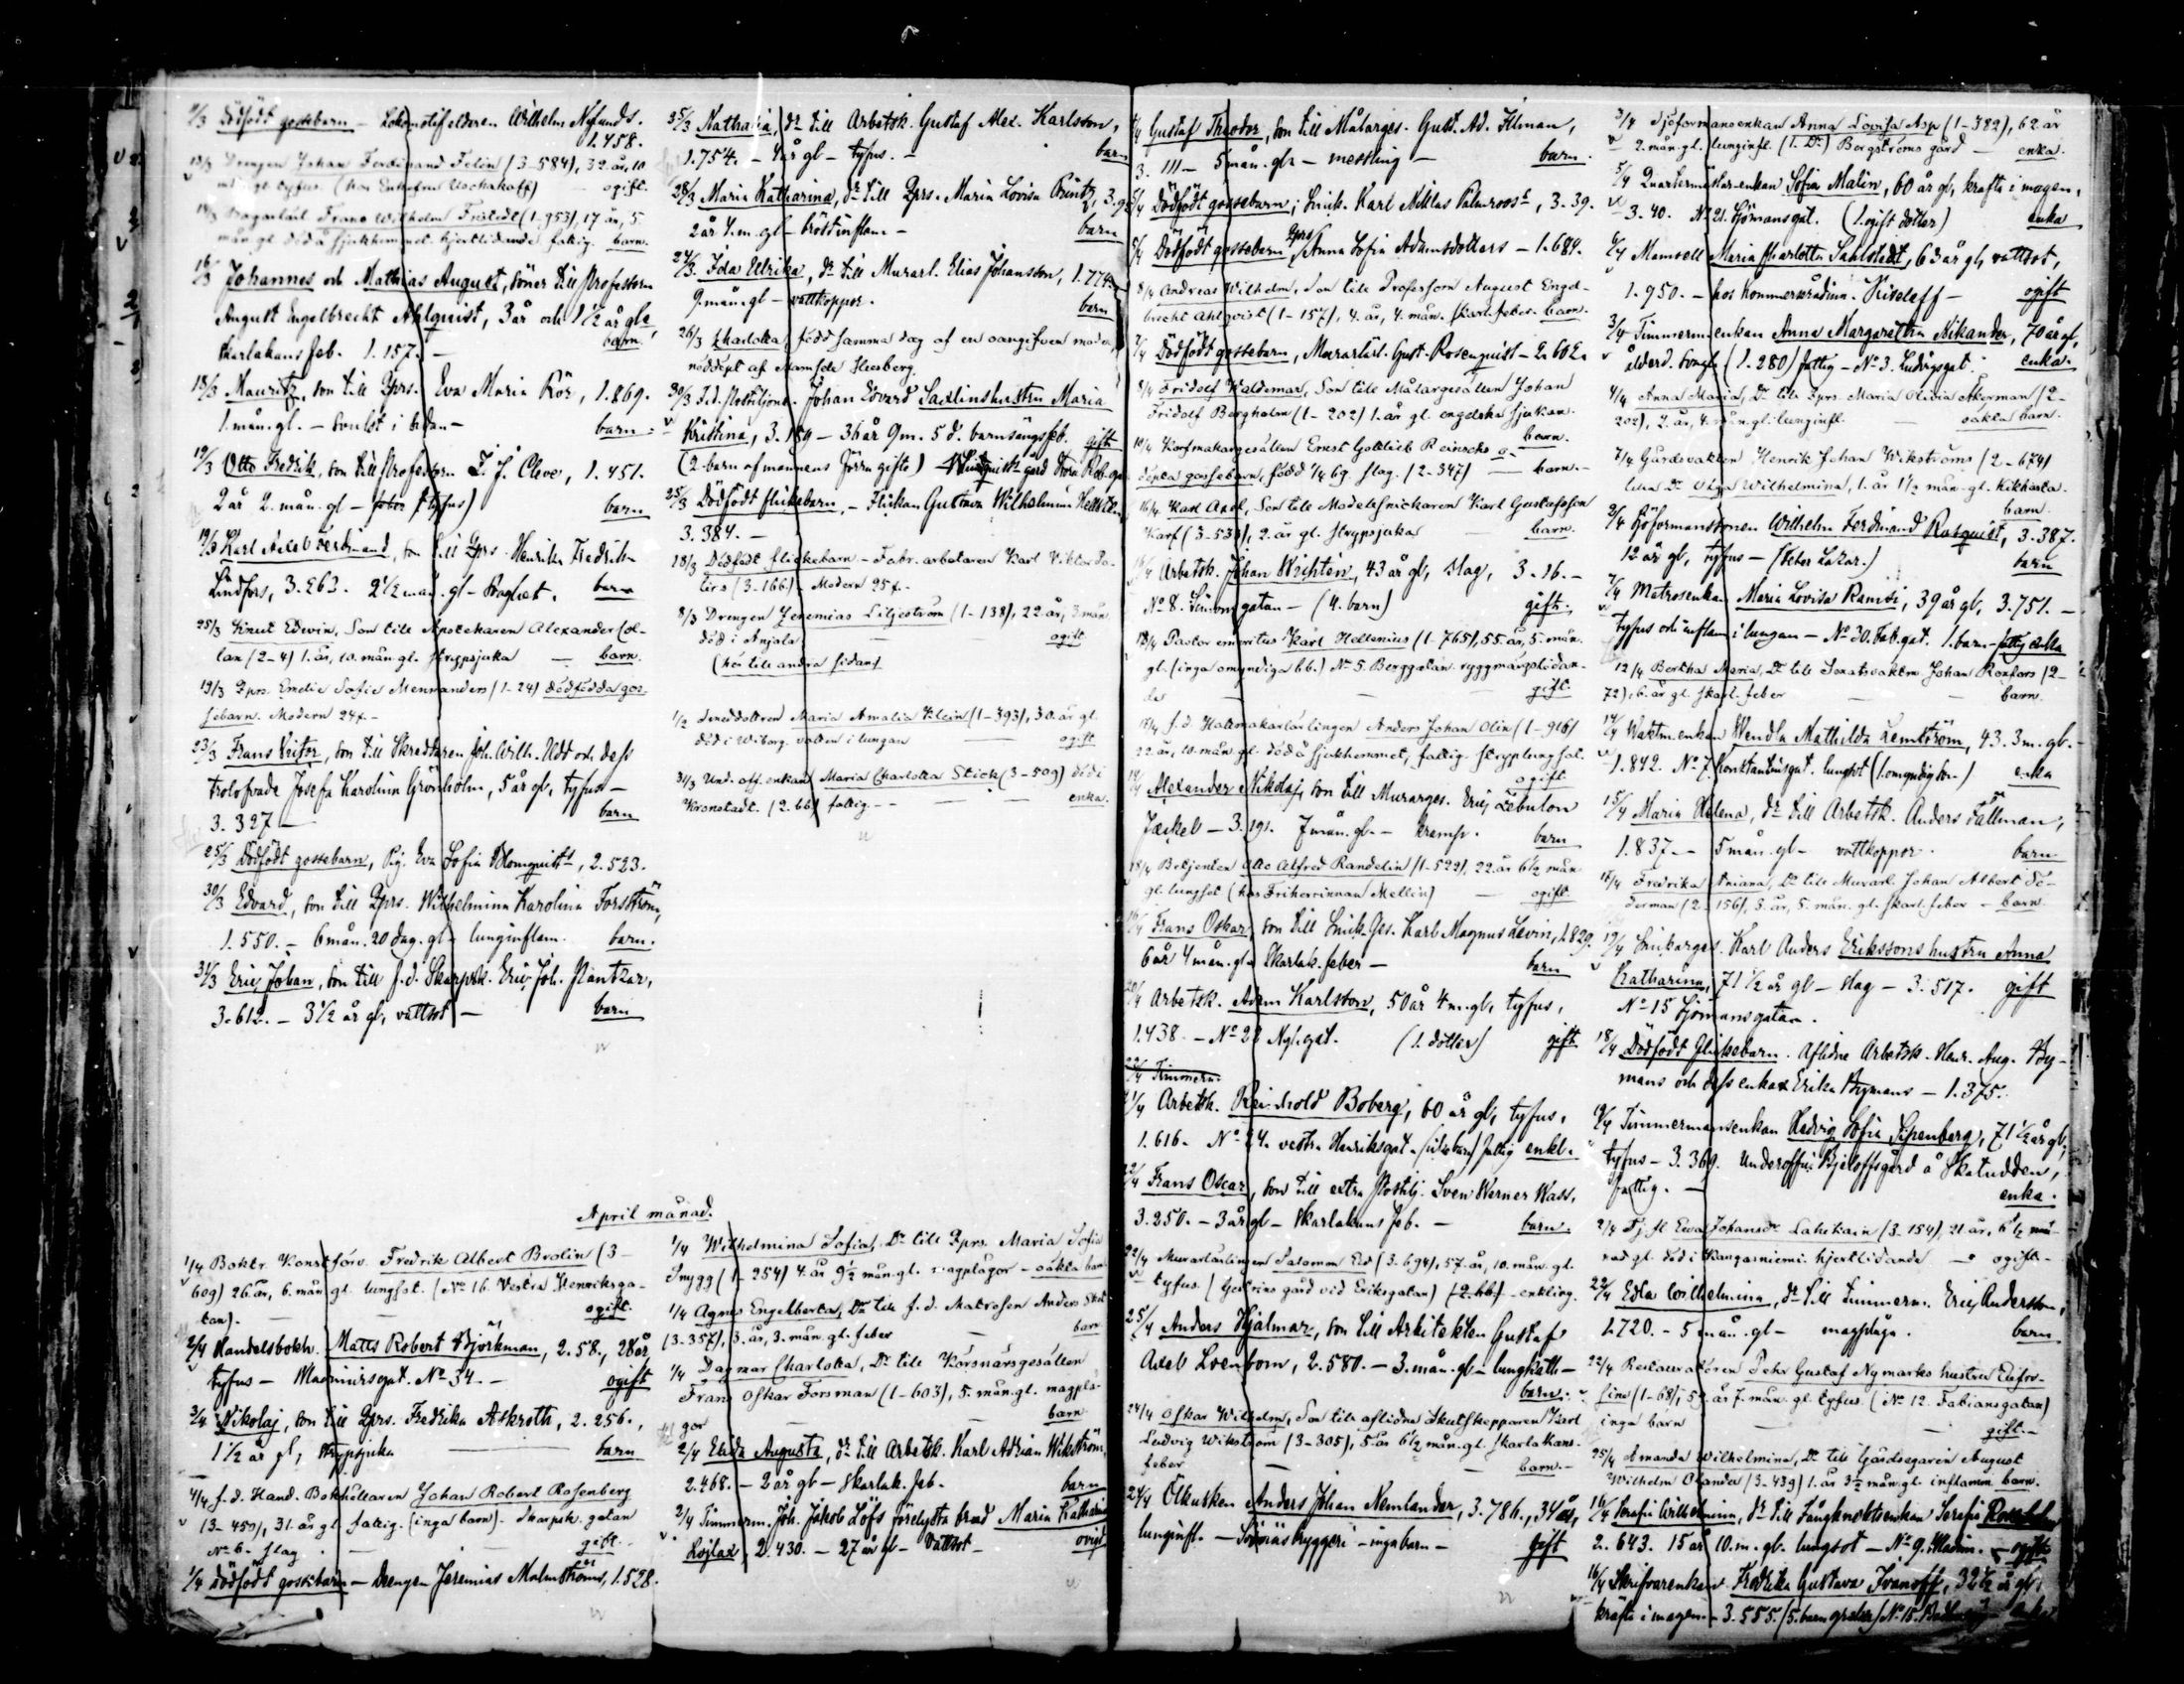 11/3 Dödfödt gossebarn - Lokomotifeldaren Wilhelm Nylunds.
1.458.
13/3 Drengen Johan Ferdinand Felin (3-584), 32 år, 10
mån. gl. tyfus. (hos Enkefru Uschakoff) - ogift.
Bagarlärl. Frans Wilhelm (1-953), 17 år, 5
mån gl. död å sjukhemmet. hjertlidande fattig. barn.
16/3 Johannes och Mathias August, söner till Professorn
August Engelbrecht Ahlquist, 3 år och 1 1/2 år gle
skarlakans feb. 1.157. - barn.
18/3 Mauritz, son till Qprs. Eva Maria Rör, 1.869.
1. mån. gl. - barn.
19/3 Otto Fredrik, son till Professorn Z. J. Cleve, 1.451.
2 år 2. mån. gl - (tyfus) barn
19/3 Karl Axel Ferdinand, son till Qprs. Henrika Fredrika
Lindfors, 3.263. 2 1/2 mån. gl - barn
25/3 Knut Edvin, Son till Apotekaren Alexander Col-
lan (2-4) 1. år, 10. mån. gl. strypsjuka - barn.
19/3 Qprs. Emelie Sofie Mennanders (1-24) dödfödda gos-
sebarn. Modern 24 f. -
23/3 Frans Victor, son till Skreddaren Joh. Wilh. Udd och dess
trolofvade Josefa Karolina Grönholm, 5 år gl, tyfus -
3.327 - barn
25/3 Dödfödt gossebarn, Pig. Eva Sofia Blomquists, 2.523.
30/3 Edvard, son till Qprs. Wilhelmina Karolina Forsström,
1.550. - 6 mån. 20 dag. gl - lunginflam. barn.
31/3 Eric Johan, son till f.d. Skarpsk. Eric Joh. Pantzar,
3.612. - 3 1/2 år gl, vattsot - barn
25/3 Nathalia, dr till Arbetsk. Gustaf Alex. Karlsson,
1.754. - 4 år gl - tyfus. - barn
28/3 Maria Katharina, dr till Qprs. Maria Lovisa Printz, 3.95
2 år 4. m. gl - bröstinflam - barn
27/3 Ida Ulrika, dr till Murarl. Elias Johansson, 1.774.
9. mån. gl - vattkoppor. barn
26/3 Charlotta, född samma dag af en oangifven moder,
nöddöpt af Mamsell Hesberg.
30/3 f.d. Postiljons. Johan Edvard Saxlinshustru Maria
Kristina, 3.189 - 36 år 9 m. 5 d. barnsängsfeb. gift
(2 barn af mannens förra gifte) gård Stora Rob. ga
25/3 Dödfödt flickebarn, - Flickan Gustava Wilhelmina
3.384. -
18/3 Dödfödt flickebarn - Fabr. arbetaren Karl Viktor
(3-166) - Modern 25 f. -
8/3 Drengen Jeremias Liljeström (1-138), 22 år, 3 mån
död i Anjala. - ogift
(hör till andra sidan)
1/2 Smeddottren Maria Amalia Klein (1-393), 30. år gl.
död i Wiborg. i lungan ogift
31/3 Und. off. enkan Maria Charlotta Stick (3-509) död i
Kronstadt. (2. bb) fattig. - - enka.
April månad.
1/4 Boktr. Konstförv. Fredrik Albert Brolin (3-
609) 26 år, 6. mån gl. lungsot. (No 16. Vestra Henriksga-
tan). - ogift.
2/4 Handelsbokh. Matts Robert Björkman, 2.58., 28 år
tyfus - No 34. - ogift
3/4 Nikolaj, son till Qprs. Fredrika Askroth, 2.256.,
1 1/2 år gl, strypsjuka - barn
4/4 f.d. Hand. Bokhållaren Johan Robert Rosenberg
(3-459), 31. år gl. fattig. (inga barn) - Skarpsk. gatan
No 6. slag - gift.
1/4 Dödfödt gossebarn - Drengen Jeremias Malmströms, 1.528.
1/4 Wilhelmina Sofia, Dr till Qprs. Maria Sofia
Snygg (1-254) 4. år 9 1/2 mån. gl. magplågor - oäkta barn
1/4 Agnes Engelberta, Dr till f.d. Matrosen Anders
(3-357), 3. år, 3. mån. gl. feber - barn
1/4 Dagmar Charlotta, Dr till Körsnärsgesällen
Frans Oskar Forsman (1-603), 5. mån. gl. magplå-
gor - barn
2/4 Elida Augusta, dr till Arbetsk. Karl Adrian Wikström,
2.468. - 2 år gl - skarlak. feb. barn
2/4 Timmerm. Joh. Jakob Löfs förelysta brud Maria Katharina
Röjlax, 2.430. - 27 år gl - Vattsot - ovigd
4/4 Gustaf Theodor, son till Målarges. Gust. Ad. Ilman,
3.111 - 5 mån. gl - messling - barn.
5/4 Dödfödt gossebarn, Snick. Karl Niklas Palmroos, 3.39.
5/4 Dödfödt gossebarn, Qprs Anna Sofia Adamsdotters - 1.684.
8/4 Andreas Wilhelm, Son till Professorn August Engel-
brecht Ahlqvist (1-157), 4. år, 4. mån. skarl. feber. barn.
7/4 Dödfödt gossebarn, Murarlärl. Gust. Rosenquist - 2.602.
8/4 Fridolf Waldemar, Son till Målargesällen Johan
Fridolf Bergholm (1-202) 1. år gl. engelska sjukan.
barn.
10/4 Korfmakargesällen Ernst Gottlieb Reinecks o-
döpta gossebarn, född 1/4 69. slag. (2-347) - barn. -
16/4 Karl Axel, Son till Modellsnickaren Karl Gustafsson
Karf (3-533), 2. år gl. strypsjuka barn.
16/4 Arbetsk. Johan Wichtén, 43 år gl, slag, 3.16. -
No 8. gatan - (4. barn) gift.
13/4 Pastor emeritus Karl Hellenius (1-765), 55. år, 5. mån.
gl. (inga omyndiga bb.) No 5. Berggatan. ryggmärgslidan-
de - gift.
15/4 f.d. Hattmakarlärlingen Anders Johan Olin (1-916)
22 år, 10. mån. gl. död å sjukhemmet, fattig.
ogift
Alexander Nikolaj, son till Murarges. Eric Zebulon
Jäckel - 3.191. 7 mån. gl. - kramp. barn
18/4 Betjenten Otto Alfred Randelin (1-529), 22. år 6 1/2 mån
gl. lungsot (hos Friherrinnan Mellin) - ogift
Frans Oskar, son till Snick. Ges. Karl Magnus Levin, 1.829.
6 år 4 mån. gl. Skarlak. feber - barn
20/4 Arbetsk. Adam Karlsson, 50 år 4 m. gl, tyfus,
1.438. - No 28 Nyl. gat. (1. dotter) gift
22/4 Timmerm.
21/4 Arbetsk. Reinhold Boberg, 60 år gl, tyfus,
1.616. No 24. vestra Henriksgat. fattig enkl.
22/4 Frans Oscar, son till extra Postilj. Sven Werner Wass.
3.250. - 3 år gl - Skarlakans feb. - barn.
22/4 Murarlärlingen Salomon Eld (3-694), 57. år, 10. mån. gl.
tyfus. ( gård vid Eriksgatan) (2. bb.) - enkling.
25/4 Anders Hjalmar, son till Arkitekten Gustaf
Axel Lvenbom, 2.580. - 3. mån. gl - lungkath. -
barn.
24/4 Oskar Wilhelm, Son till aflidne Skutskepparen Karl
Ludvig Wikström (3-305), 5. år 6 1/2 mån. gl. skarlakans-
feber - barn. -
24/4 Ölkusken Anders Johan Nemlander, 3.786., 34 år,
lunginfl. - bryggeri - inga barn - gift
3/4 Sjöformansenkan Anna Lovisa Asp (1-382), 62 år
2. mån. gl. lunginfl. (1. Dr) Bergströms gård - enka.
5/4 Quartermästar-enkan Sofia Malin, 60 år gl, kräfta i magen,
3.40. No 21. Sjömansgat. (1. gift dotter) enka
6/4 Mamsell Maria Charlotta Sahlstedt, 63 år gl, vattsot,
1.950. - hos Kommerserådinn. Kiseleff - ogift
3/4 Timmerm. enkan Anna Margaretha Nikander, 70 år gl,
ålderd. (1.280) fattig - No 3. Ludvigsgat. enka.
4/4 Anna Maria, Dr till Qprs. Maria Olivia Åkerman (2-
202), 2. år, 4. mån. gl. lunginfl. - oäkta barn.
7/4 Gårdsvakten Henrik Johan Wikströms (2-674)
Dr Olga Wilhelmina, 1. år 1 1/2 mån. gl. kikhosta.
barn.
2/4 Sjöformanssonen Wilhelm Ferdinand Rosquist, 3.387.
12 år gl, tyfus - barn
7/4 Matrosenka Maria Lovisa Ramiti, 39 år gl, 3.751. -
tyfus och inflam i lungan - No 30. Fab. gat. 1. barn - fattig enka
12/4 Bertha Maria, Dr till Johan Roxfors (2-
72), 6. år gl. skarl. feber - barn.
14/4 Waktm. enkan Wendla Mathilda Lemström, 43. 3 m. gl. -
1.842. No 7 Konstantinsgat. lungsot (1. omyndig son) enka
15/4 Maria Helena, dr till Arbetsk. Anders Fallman,
1.837. - 5 mån. gl - vattkoppor. barn
16/4 Fredrika , Dr till Murarl. Johan Albert Sö-
derman (2-156), 3. år, 5. mån. gl. skarl. feber - barn
19/4 Snickarges. Karl Anders Erikssons hustru Anna
Catharina, 71 1/2 år gl - slag - 3.517. gift
No 15 Sjömansgatan.
18/4 Dödfödt flickebarn. Aflidne Arbetsk. Henr. Aug. By-
mans och dess enka Erika Bymans - 1.375.
19/4 Timmermansenkan Hedvig Sofia Sipenberg, 71 1/2 år gl,
tyfus - 3.369. Underoffic. gård å Skatudden,
fattig. - enka.
2/4 Tj. fl Eva Johansdr Lahikain (3-154), 21 år, 6 1/2 må-
nad gl. död i Kangasniemi. hjertlidande - ogift -
22/4 Edla Wilhelmina, dr till Timmerm. Eric Andersson,
1.720. - 5 mån. gl - magplåga. barn
22/4 Restauratören Pehr Gustaf Nymarks hustru Eufro-
sine (1-68), 59. år 7. mån. gl. tyfus. (No 12. Fabiansgatan)
inga barn - gift. -
25/4 Amanda Wilhelmina, Dr till Gårdsegaren August
Wilhelm Ölander (3-439) 1. år 3 1/2 mån. gl. inflamm. barn.
16/4 Serafia Wilhelmina, dr till Fångknektsenkan Serafia
2.643. 15 år 10. m. gl. lungsot - No 9. - ogift
16/4 Skrifvarenkan Fredrika Gustava Ivanoff, 32 1/2 år gl,
kräfta i magen - 3.555. (5. barn No 15.